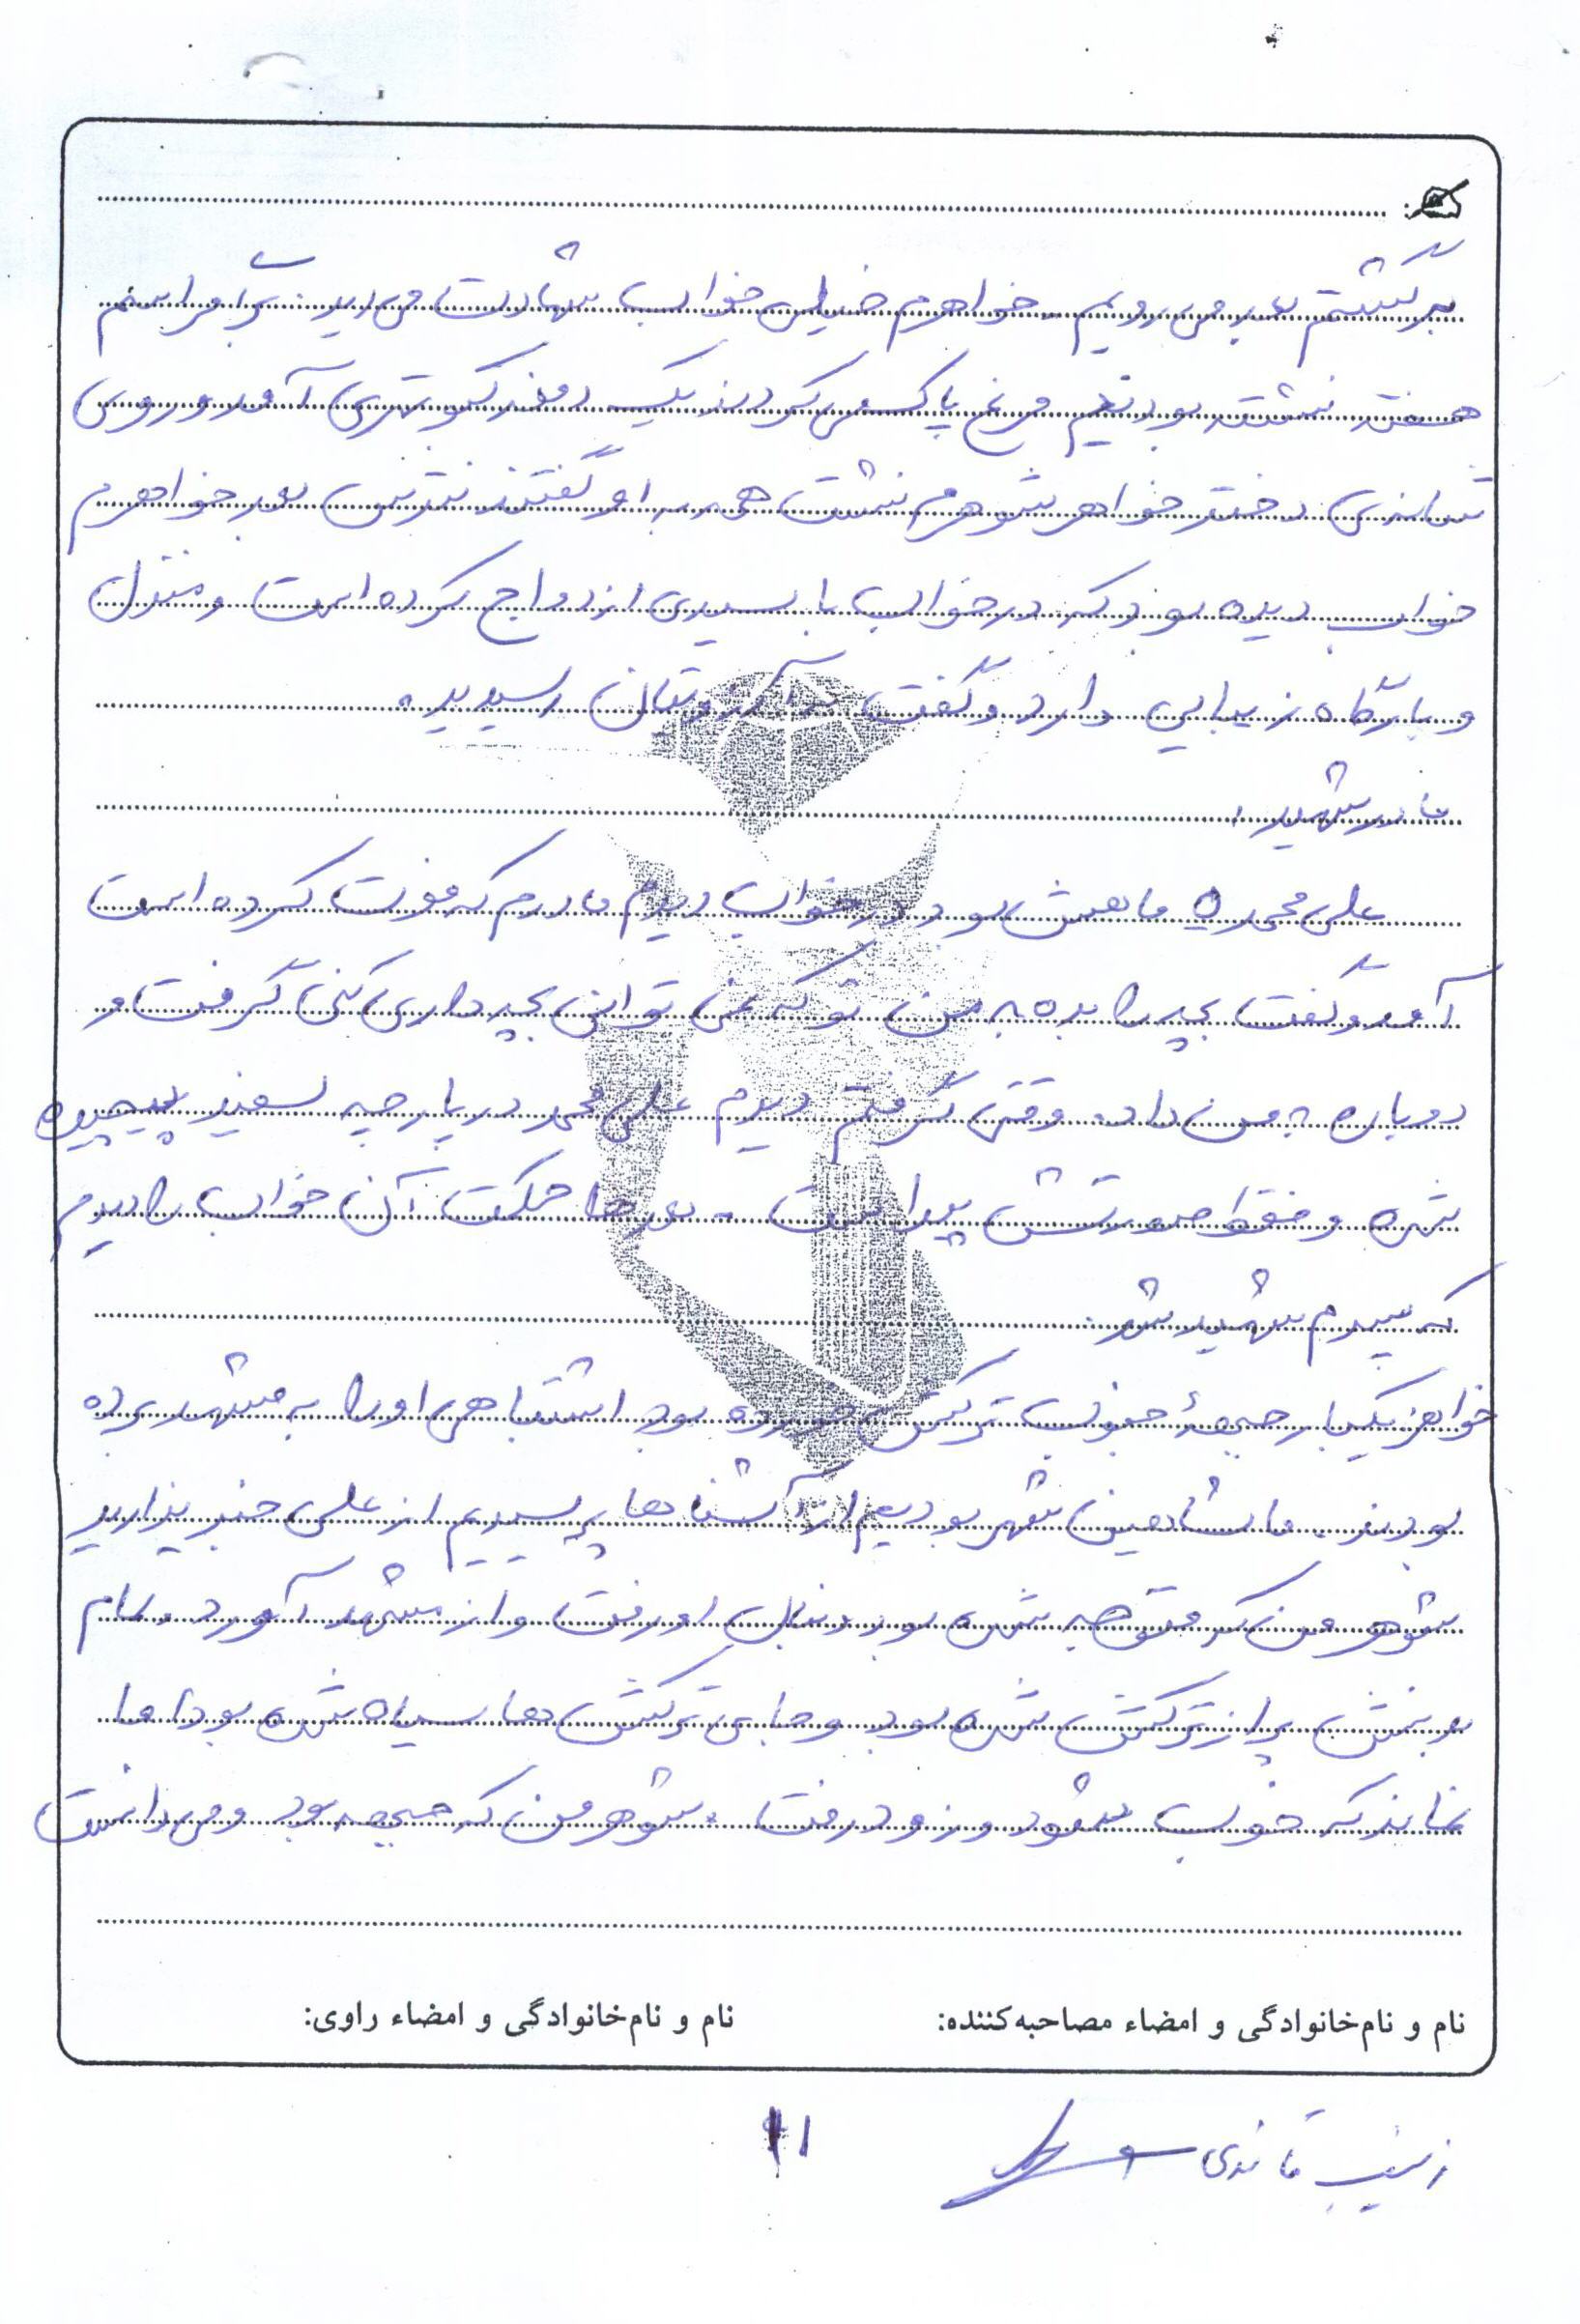 برگشتم بعد می رویم. خواهرم خیلی خواب شهادت می دید. شب مراسم
هفت نشسته بودیم مرغ پاک می کردند یک دفعه کبوتری آمد و روی
شانه ی دختر خواهر شوهرم نشست همه به او گفتند نترس بعد خواهرم
خواب دیده بود که در خواب با سیدی ازدواج کرده است و منزل
و بارگاه زیبایی دارد و گفت به آرزویتان رسیدید.
مادر شهید:
علی محمد ۵ ماهش بود در خواب دیدم مادرم که فوت کرده است
آمد و گفت بچه را بده به من تو که نمی توانی بچه داری کنی گرفت و
دوباره به من داد. وقتی گرفتم دیدم علی محمد در پارچه سفید پیچیده
شده و فقط صورتش پیدا است. بعدها حکمت آن خواب را دیدم
که پسرم شهید شد.
خواهر: یکبار جبههٔ جنوب ترکش خورده بود اشتباهی او را به مشهد برده
بودند. ما شاهین شهر بودیم از آشناها پرسیدیم از علی خبر ندارید
شوهر من که متوجه شده بود دنبال او رفت و از مشهد آورد. تمام
بدنش پر از ترکش شده بود و جای ترکش ها سیاه شده بود اما
نماند که خوب شود و زود رفت. شوهر من که جبهه بود و می دانست
نام و نام‌خانوادگی و امضاء مصاحبه‌کننده: نام و نام‌خانوادگی و امضاء راوی:
زینب قائدی
۱۱